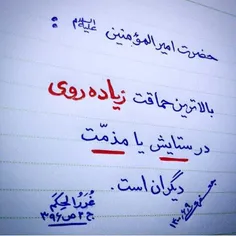 حضرت امیرالمؤمنین علیه‌السلام :
بالاترین حماقت زیاده‌روی
در ستایش یا مذمّت
دیگران است.
غُرَرُالحِکَم
ج ۲ ص ۳۹۶